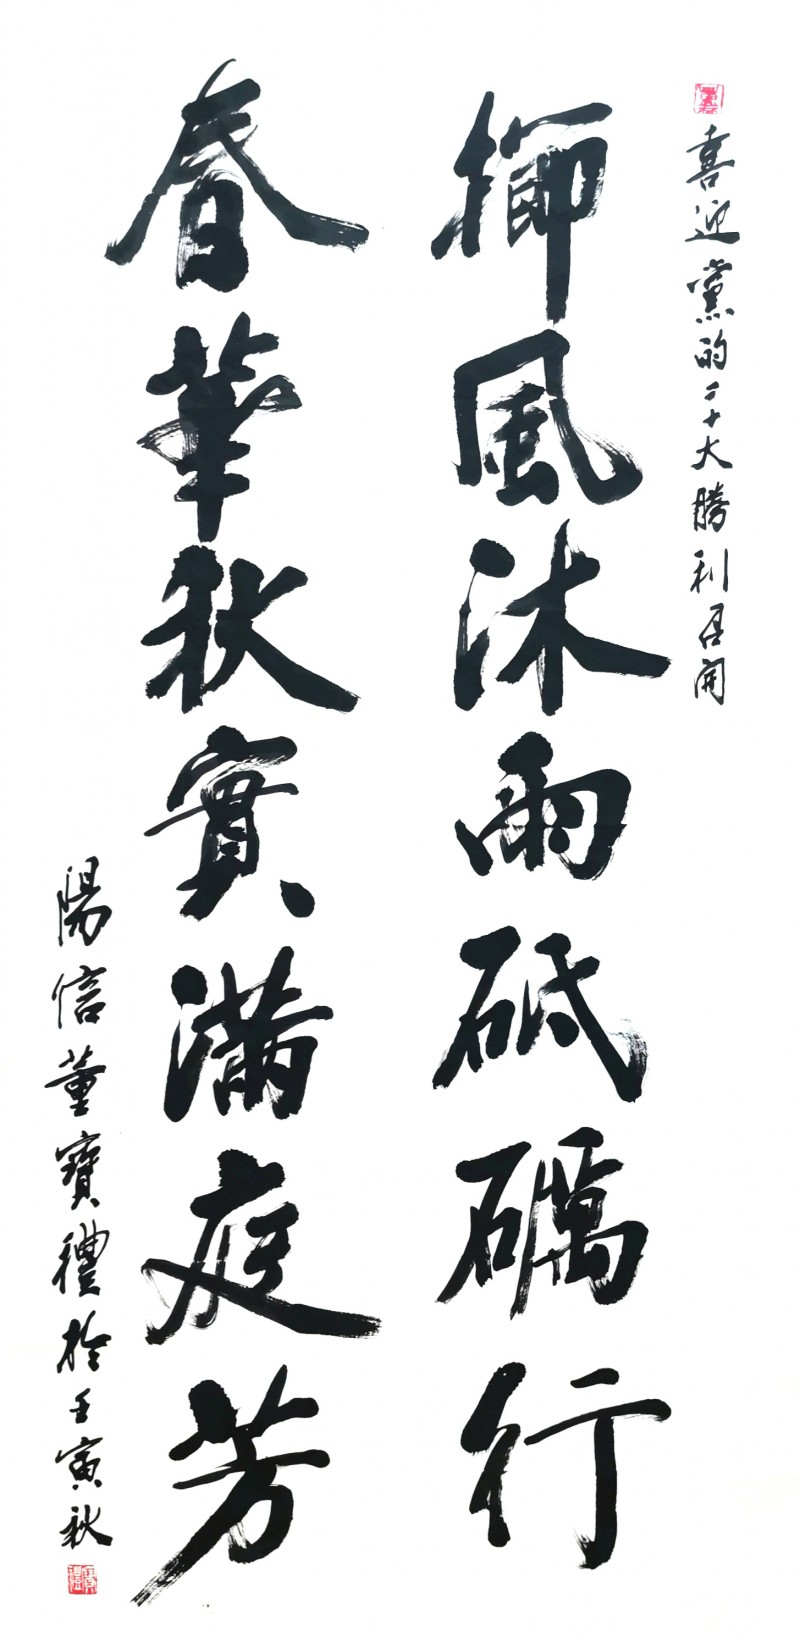 喜迎黨的二十大勝利召開
擳風沐雨砥礪行
春華秋實滿庭芳
陽信董寶禮於壬寅秋